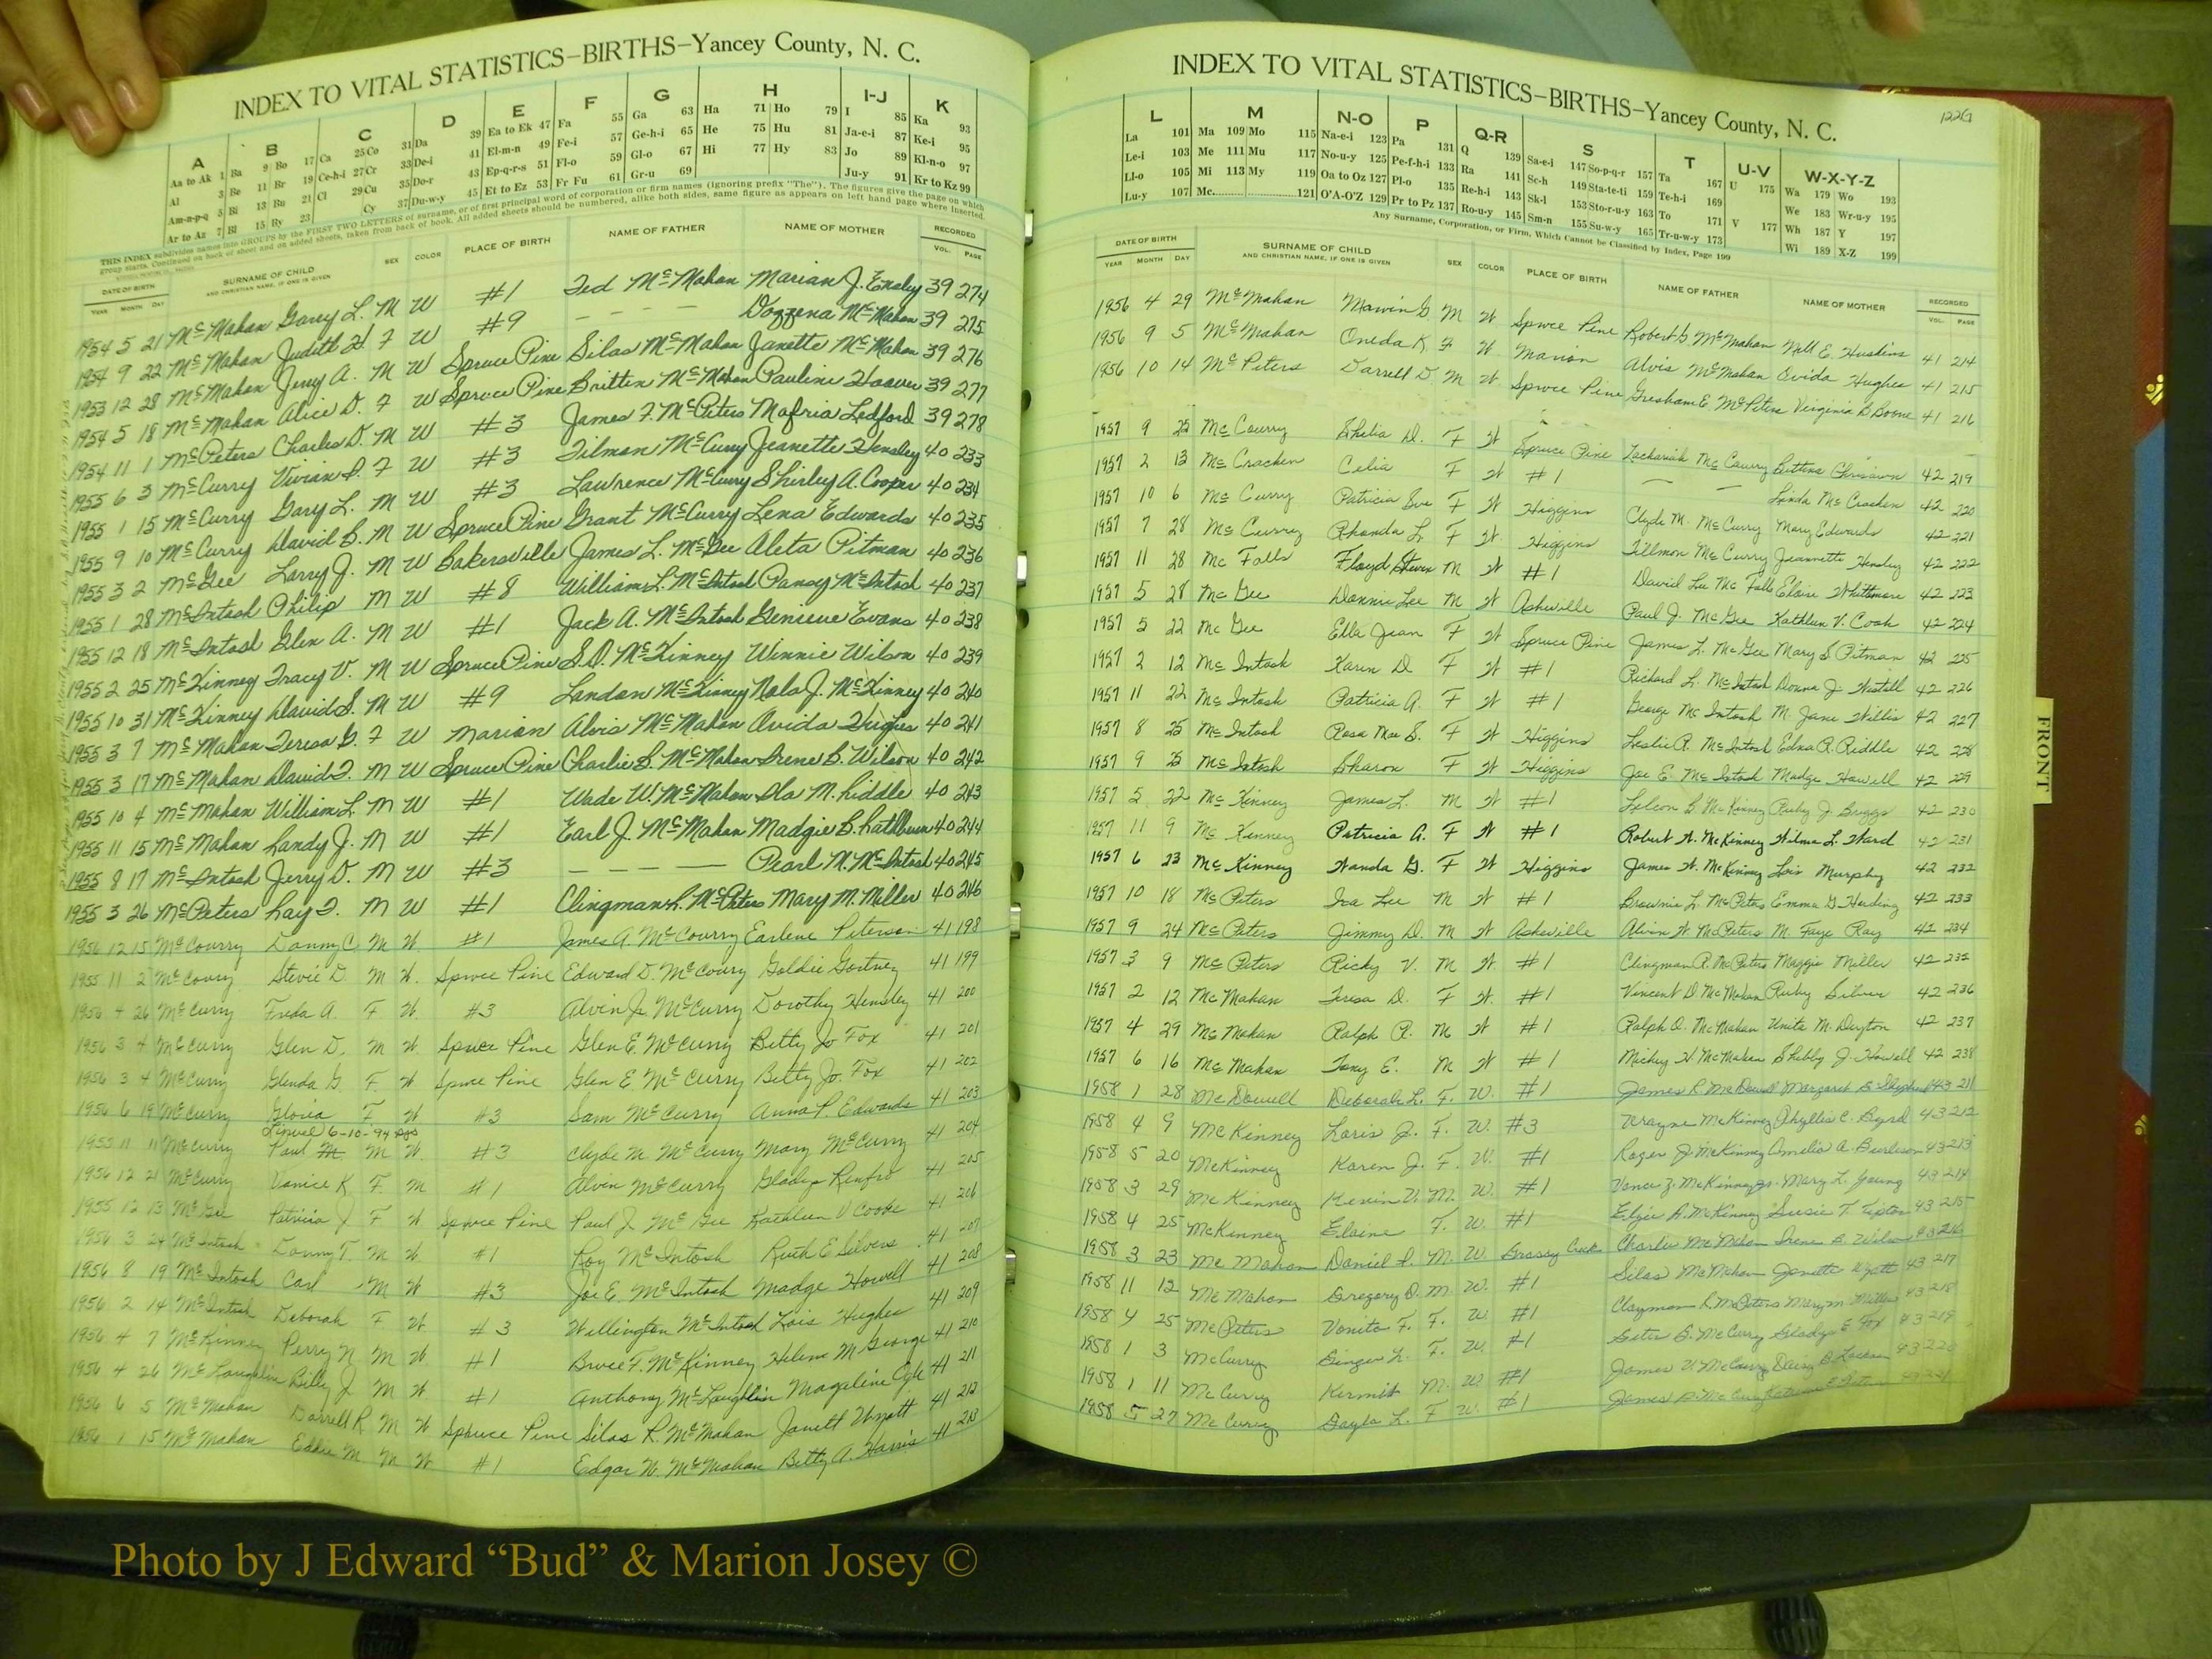 INDEX TO VITAL STATISTICS–BIRTHS–Yancey County, N. C.
A B C D E F G H I-J K
Aa to Ak 1 Ba 9 Bo 17 Ca 25 Co 31 Da 39 Ea to Ek 47 Fa 55 Ga 63 Ha 71 Ho 79 I 85 Ka 93
Al 3 Be 11 Br 19 Ce-h-i 27 Cr 33 De-i 41 El-m-n 49 Fe-i 57 Ge-h-i 65 He 75 Hu 81 Ja-e-i 87 Ke-i 95
Am-n-p-q 5 Bi 13 Bu 21 Cl 29 Cu 35 Do-r 43 Ep-q-r-s 51 Fl-o 59 Gl-o 67 Hi 77 Hy 83 Jo 89 Kl-n-o 97
Ar to Az 7 Bl 15 By 23 Cy 37 Du-w-y 45 Et to Ez 53 Fr Fu 61 Gr-u 69 Ju-y 91 Kr to Kz 99
THIS INDEX subdivides names into GROUPS by the FIRST TWO LETTERS of surname, or of first principal word of corporation or firm names (ignoring prefix "The"). The figures give the page on which
group starts. Continued on back of sheet and on added sheets, taken from back of book. All added sheets should be numbered, alike both sides, same figure as appears on left hand page where inserted.
DATE OF BIRTH SURNAME OF CHILD SEX COLOR PLACE OF BIRTH NAME OF FATHER NAME OF MOTHER RECORDED
YEAR MONTH DAY AND CHRISTIAN NAME, IF ONE IS GIVEN VOL. PAGE
1954 5 21 McMahan Gary L. M W #1 Ted McMahan Marian J. Ensley 39 274
1954 9 22 McMahan Judith H. F W #9 – – – Dozzena McMahan 39 275
1953 12 28 McMahan Jerry A. M W Spruce Pine Silas McMahan Janette McMahan 39 276
1954 5 18 McMahan Alice D. F W Spruce Pine Britten McMahan Pauline Hoover 39 277
1954 11 1 McPeters Charles D. M W #3 James F. McPeters Mafria Ledford 39 278
1955 6 3 McCurry Vivian F W #3 Tilman McCurry Jeanette Hensley 40 233
1955 1 15 McCurry Gary L. M W #3 Lawrence McCurry Shirley A. Cooper 40 234
1955 9 10 McCurry David B. M W Spruce Pine Grant McCurry Lena Edwards 40 235
1955 3 2 McGee Larry J. M W Bakersville James L. McGee Aleta Pitman 40 236
1955 1 28 McIntosh Philip M W #8 William L. McIntosh Pansy McIntosh 40 237
1955 12 18 McIntosh Glen A. M W #1 Jack A. McIntosh Genieve Evans 40 238
1955 2 25 McKinney Tracy V. M W Spruce Pine S.D. McKinney Winnie Wilson 40 239
1955 10 31 McKinney David S. M W #9 Landon McKinney Nola J. McKinney 40 240
1955 3 7 McMahan Teresa G. F W Marian Alvis McMahan Avida Hughes 40 241
1955 3 17 McMahan David F. M W Spruce Pine Charlie B. McMahan Irene B. Wilson 40 242
1955 10 4 McMahan William L. M W #1 Wade W. McMahan Ila M. Riddle 40 243
1955 11 15 McMahan Randy J. M W #1 Earl J. McMahan Madgie B. Rathburn 40 244
1955 8 17 McIntosh Jerry D. M W #3 – – – Pearl N. McIntosh 40 245
1955 3 26 McPeters Ray F. M W #1 Clingman R. McPeters Mary M. Miller 40 246
1956 12 15 McCourry Danny C. M W #1 James A. McCourry Earlene Peterson 41 198
1955 11 2 McCoury Stevie D M W. Spruce Pine Edward D. McCoury Goldie Gortney 41 199
1956 4 26 McCurry Freda A. F W. #3 Alvin Jr. McCurry Dorothy Hensley 41 200
1956 3 4 McCurry Glen D. M W Spruce Pine Glen E. McCurry Betty Jo Fox 41 201
1956 3 4 McCurry Glenda G. F. W Spruce Pine Glen E. McCurry Betty Jo. Fox 41 202
1956 6 19 McCurry Gloria F W #3 Sam McCurry Anna P. Edwards 41 203
6-10-94
1955 11 11 McCurry Paul M W. #3 Clyde M. McCurry Mary McCurry 41 204
1956 12 21 McCurry Vanice K F. M #1 Alvin McCurry Gladys Renfro 41 205
1955 12 13 McGee Patricia J F W Spruce Pine Paul J. McGee Kathleen V Cooke 41 206
1956 3 24 McIntosh Danny T. M W #1 Roy McIntosh Ruth E Silvers 41 207
1956 8 19 McIntosh Carl M W #3 Joe E. McIntosh Madge Howell 41 208
1956 2 14 McIntosh Deborah F W #3 Wellington McIntosh Lois Hughes 41 209
1956 4 7 McKinney Perry N M W. #1 Bruce F. McKinney Helene M George 41 210
1956 4 26 McLaughlin Billy J M W. #1 Anthony McLaughlin Magaline Ogle 41 211
1956 6 5 McMahan Darrell R M W Spruce Pine Silas R. McMahan Janett Wyatt 41 212
1956 1 15 McMahan Eddie M M W #1 Edgar W. McMahan Betty A. Harris 41 213
122G
INDEX TO VITAL STATISTICS–BIRTHS–Yancey County, N. C.
L M N-O P Q-R S T U-V W-X-Y-Z
La 101 Ma 109 Mo 115 Na-e-i 123 Pa 131 Q 139 Sa-e-i 147 So-p-q-r 157 Ta 167 U 175 Wa 179 Wo 193
Le-i 103 Me 111 Mu 117 No-u-y 125 Pe-f-h-i 133 Ra 141 Sc-h 149 Sta-te-ti 159 Te-h-i 169 We 183 Wr-u-y 195
Ll-o 105 Mi 113 My 119 Oa to Oz 127 Pl-o 135 Re-h-i 143 Sk-l 153 Sto-r-u-y 163 To 171 V 177 Wh 187 Y 197
Lu-y 107 Mc 121 O'A-O'Z 129 Pr to Pz 137 Ro-u-y 145 Sm-n 155 Su-w-y 165 Tr-u-w-y 173 Wi 189 X-Z 199
Any Surname, Corporation, or Firm, Which Cannot be Classified by Index, Page 199
DATE OF BIRTH SURNAME OF CHILD SEX COLOR PLACE OF BIRTH NAME OF FATHER NAME OF MOTHER RECORDED
YEAR MONTH DAY AND CHRISTIAN NAME, IF ONE IS GIVEN VOL. PAGE
1956 4 29 McMahan Marvin G. M W Spruce Pine Robert G. McMahan Nell E. Huskins 41 214
1956 9 5 McMahan Oneda K F W. Marion Alvis McMahan Ovida Hughes 41 215
1956 10 14 McPeters Darrell D M W. Spruce Pine Gresham E. McPeters Virginia B Boone 41 216
1957 9 25 McCourry Shelia D. F W Spruce Pine Zachariah McCourry 42 219
1957 2 13 McCracken Celia F W #1 – – Linda McCracken 42 220
1957 10 6 McCurry Patricia Sue F W Higgins Clyde M. McCurry Mary Edwards 42 221
1957 7 28 McCurry Rhonda L. F W. Higgins Tillmon McCurry Jeannette Hensley 42 222
1957 11 28 McFalls Floyd Steven M W #1 David Lee McFalls Eloise Whittmore 42 223
1957 5 28 McGee Donnie Lee M W Asheville Paul J. McGee Kathleen V. Cook 42 224
1957 5 22 McGee Ella Jean F W Spruce Pine James L. McGee Mary S Pitman 42 225
1957 2 12 McIntosh Karen D F W #1 Richard L. McIntosh Donna J. Westall 42 226
1957 11 22 McIntosh Patricia A. F W #1 George McIntosh M. Jane Willis 42 227
1957 8 25 McIntosh Rosa Mae S. F W Higgins Leslie R. McIntosh Edna R. Riddle 42 228
1957 9 25 McIntosh Sharon F W Higgins Joe E. McIntosh Madge Howell 42 229
1957 5 22 McKinney James L. M W #1 McKinney Ruby J. Briggs 42 230
1957 11 9 McKinney Patricia A. F W #1 Robert W. McKinney Wilma L. Ward 42 231
1957 6 23 McKinney Wanda G. F W Higgins James W. McKinney Lois Murphy 42 232
1957 10 18 McPeters Ira Lee M W #1 Brownie L. McPeters Emma G. Harding 42 233
1957 9 24 McPeters Jimmy D. M W Asheville Alvin W. McPeters M. Faye Ray 42 234
1957 3 9 McPeters Ricky V. M W #1 Clingman R. McPeters Maggie Miller 42 235
1957 2 12 McMahan Teresa D. F W. #1 Vincent D. McMahan Ruby Silver 42 236
1957 4 29 McMahan Ralph R. M W #1 Ralph O. McMahan Unita M. Deyton 42 237
1957 6 16 McMahan Tony E. M W #1 Mickey H. McMahan Shelby J. Howell 42 238
1958 1 28 McDowell Deborah L. F. W. #1 James R. McDowell Margaret B. Shepherd 43 211
1958 4 9 McKinney Loris J. F. W. #3 Wrayne McKinney Phyllis C. Byrd 43 212
1958 5 20 McKinney Karen J. F. W. #1 Roger J. McKinney Amelia A. Burleson 43 213
1958 3 29 McKinney Kevin V. M. W. #1 Vance Z. McKinney Jr. Mary L. Young 43 214
1958 4 25 McKinney Elaine F. W. #1 Elzie A. McKinney Susie T. Tipton 43 215
1958 3 23 McMahan Daniel L. M. W. Grassy Creek Charlie McMahan Irene B. Wilson 43 216
1958 11 12 McMahan Gregory D. M. W. #1 Silas McMahan Janette Wyatt 43 217
1958 4 25 McPeters Vonita F. F. W. #1 Clayman R. McPeters Mary M. Miller 43 218
1958 1 3 McCurry Ginger L. F. W. #1 McCurry Gladys E Fox 43 219
1958 1 11 McCurry Kermit M. W. #1 James V. McCurry Daisy B. 43 220
1958 5 27 McCurry Gayla L. F W. #1 James McCurry
FRONT
Photo by J Edward “Bud” & Marion Josey ©